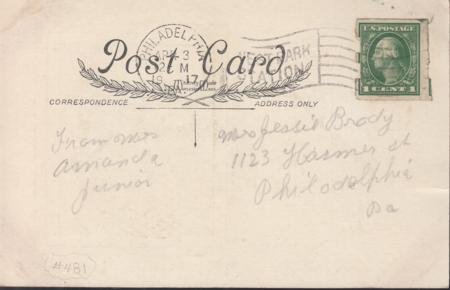 PHILADELPHIA
APR 3
M
1917
WEST PARK
STATION
U.S. POSTAGE
1 CENT 1
Post Card
CORRESPONDENCE
ADDRESS ONLY
From Mrs
Amanda
Junior
Mrs Jessie Brody
1123 
Philadelphia
Pa
#481